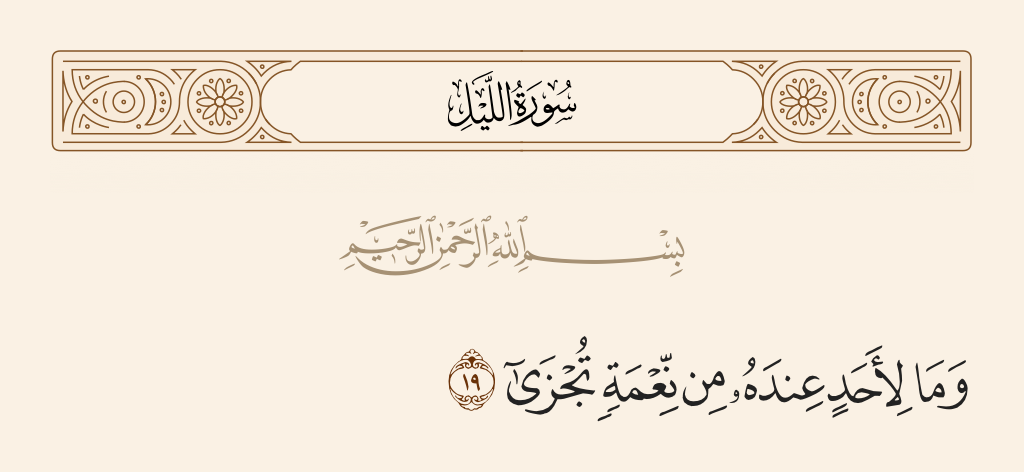 سُورَةُ اللَّيْلِ
بِسْمِ ٱللَّهِ ٱلرَّحْمَٰنِ ٱلرَّحِيمِ
وَمَا لِأَحَدٍ عِندَهُۥ مِن نِّعْمَةٍ تُجْزَىٰٓ ١٩